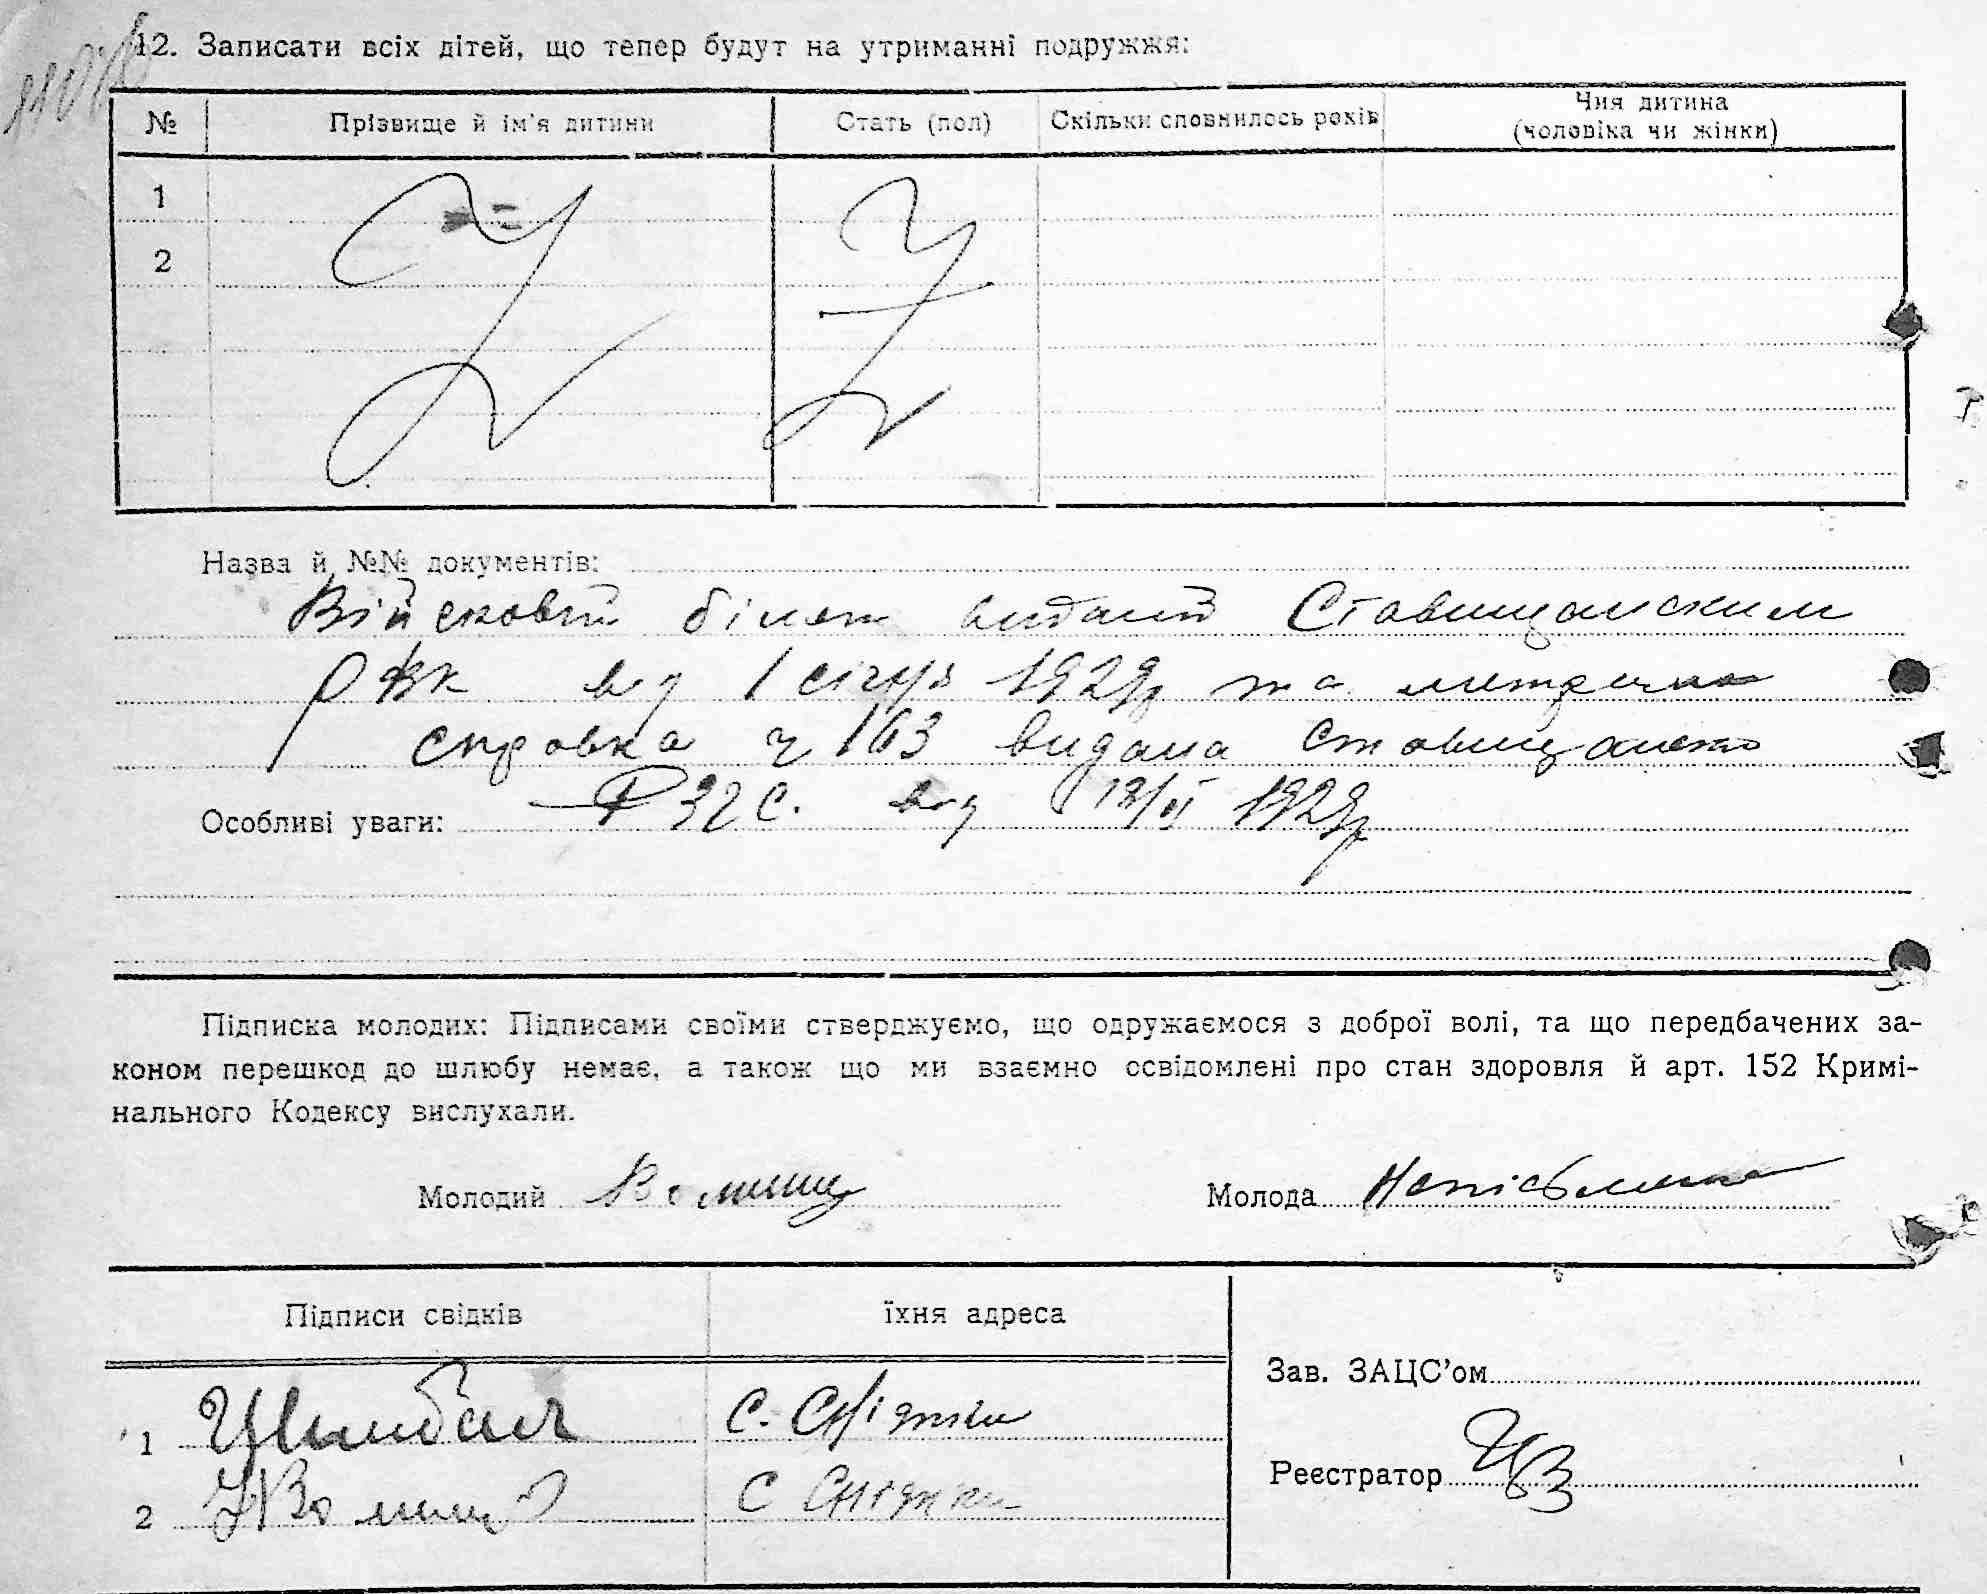 12. Записати всіх дітей, що тепер будут на утриманні подружжя:
№ Прізвище й ім'я дитини Стать (пол) Скільки сповнилось років Чия дитина
(чоловіка чи жінки)
1
2
Назва й №№ документів:
Військовий білет виданий Ставищанским
РВК від 1 січня 1929р та метрична
справка ч 163 видана Ставищанською
РЗЦС. від 1929р
Особливі уваги:
Підписка молодих: Підписами своїми стверджуємо, що одружаємося з доброї волі, та що передбачених за-
коном перешкод до шлюбу немає, а також що ми взаємно освідомлені про стан здоровля й арт. 152 Кримі-
нального Кодексу вислухали.
Молодий Молода Неписьменна
Підписи свідків їхня адреса
Зав. ЗАЦС'ом
1 Цимбал с. Сніжки
Реєстратор
2 с Сніжки